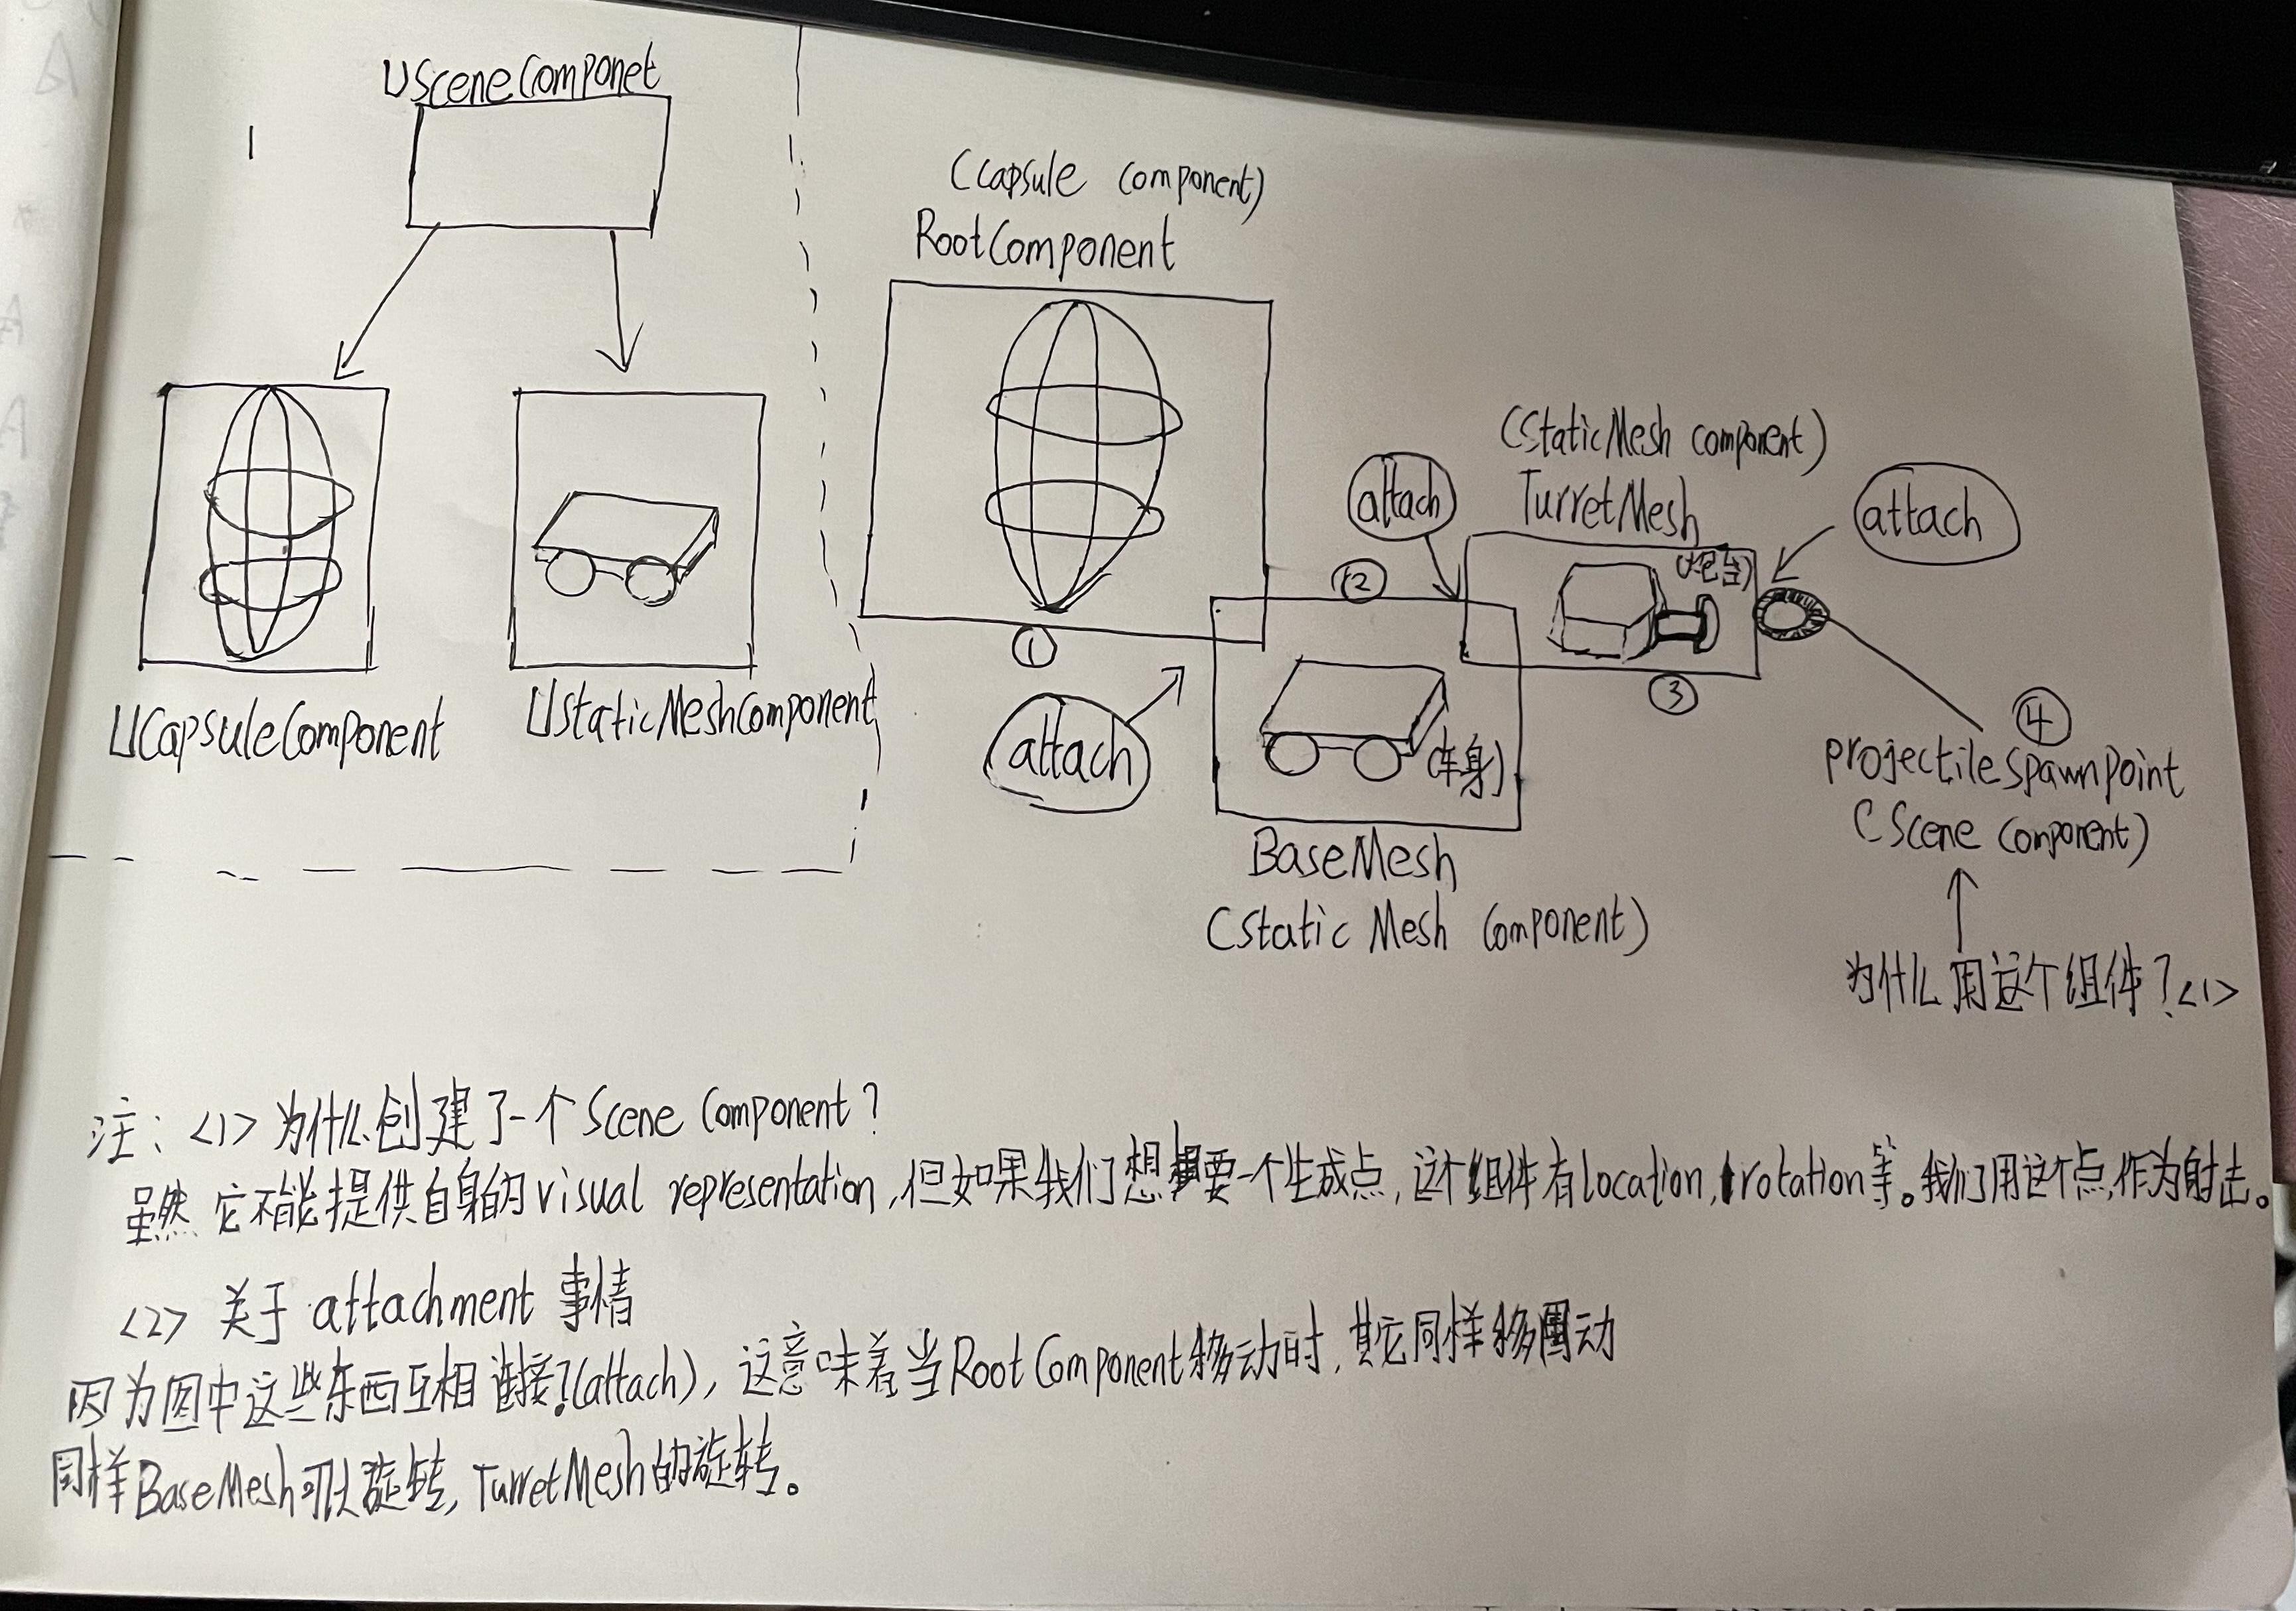 USceneComponet
UCapsuleComponent
UStaticMeshComponent
(Capsule Component)
RootComponent
①
attach
②
attach
(车身)
BaseMesh
(Static Mesh Component)
(StaticMesh component)
TurretMesh
(炮台)
③
attach
④
projectileSpawnPoint
(Scene Component)
为什么用这个组件？<1>
注：<1>为什么创建了一个Scene Component？
虽然它不能提供自身的visual representation，但如果我们想要一个生成点，这个组件有location，rotation等。我们用这个点，作为射击。
<2> 关于 attachment 事情
因为图中这些东西互相连接了(attach)，这意味着当RootComponent移动时，其它同样移动
同样BaseMesh可以旋转，TurretMesh的旋转。